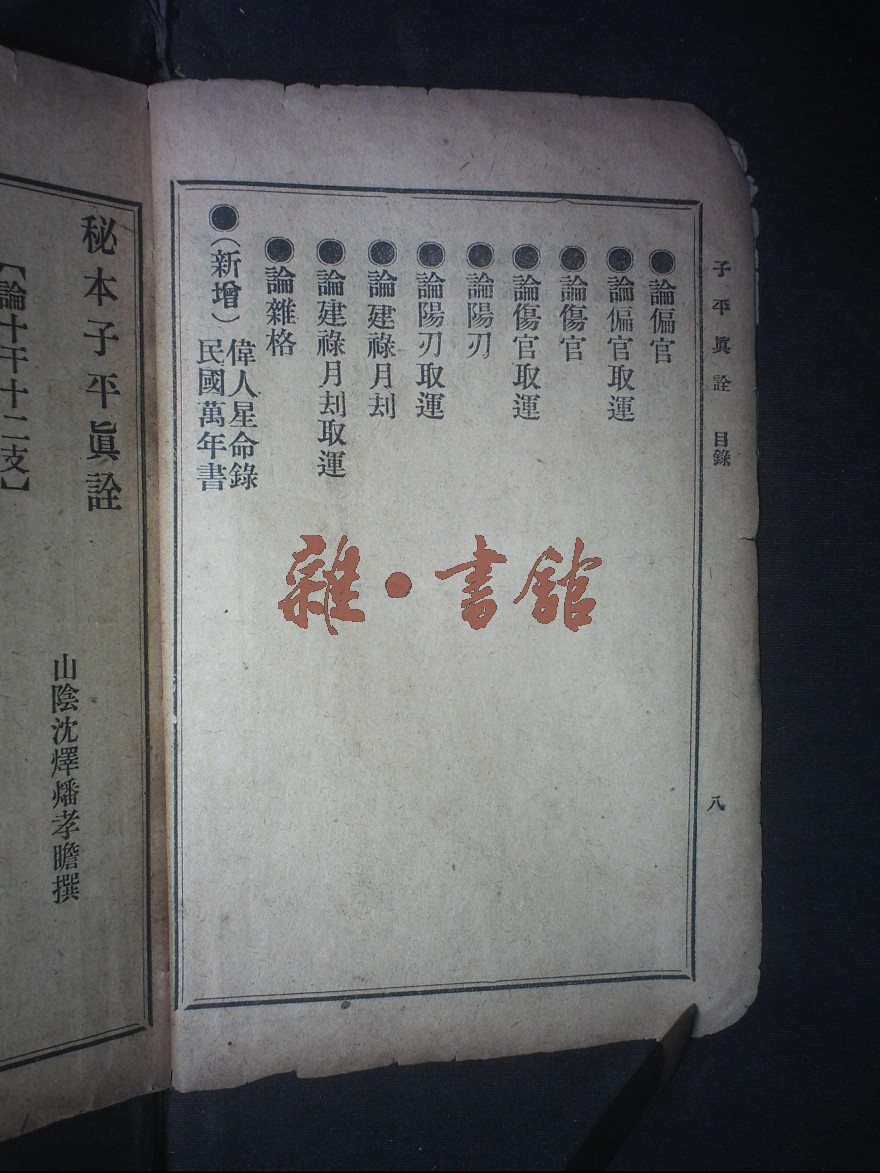 子平眞詮 目錄 八
●論偏官
●論偏官取運
●論傷官
●論傷官取運
●論陽刃
●論陽刃取運
●論建祿月刦
●論建祿月刦取運
●論雜格
●(新增)偉人星命錄
民國萬年書
雜·書舘
秘本子平眞詮
山陰沈燡燔孝瞻撰
【論十干十二支】